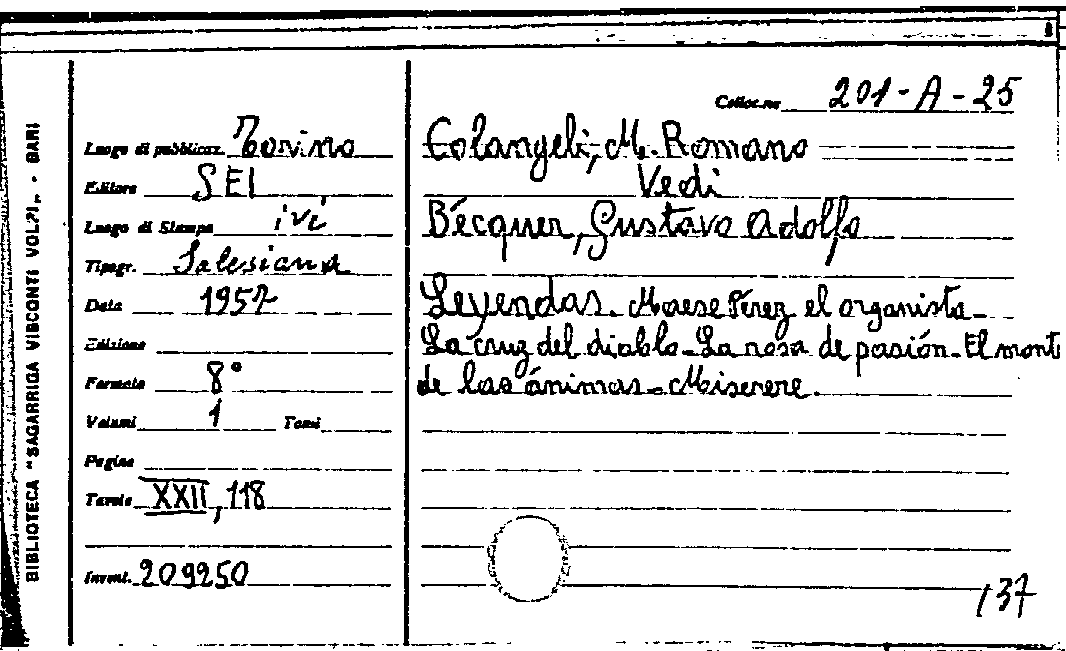 BIBLIOTECA "SAGARRIGA VISCONTI VOLPI" - BARI
Colloc.ne 201-A-25
Luogo di pubblicaz. Torino
Editore SEI
Luogo di Stampa ivi
Tipogr. Salesiana
Data 1957
Edizione
Formato 8°
Volumi 1 Tomi
Pagine
Tavole XXII, 118
Invent. 209250
Colangeli, M. Romano
Vedi
Bécquer, Gustavo Adolfo
Leyendas. Maese Pérez el organista -
La cruz del diablo - La rosa de pasión - El monte
de las ánimas - Miserere.
137